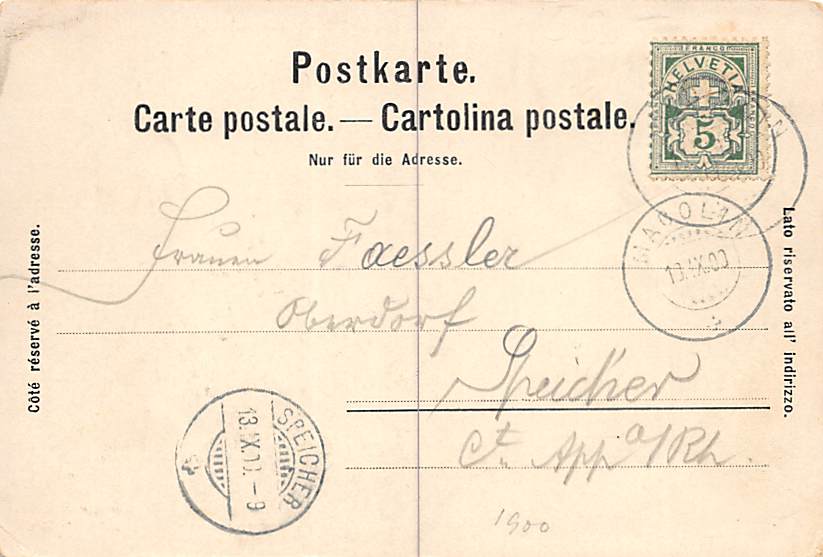 Postkarte.
Carte postale. — Cartolina postale.
Nur für die Adresse.
FRANCO
HELVETIA
5
MACOLIN
19.IX.00
Côté réservé à l'adresse.
Lato riservato all' indirizzo.
Frauen Faessler
Oberdorf
Speicher
Ct. App. a/Rh.
SPEICHER
1900